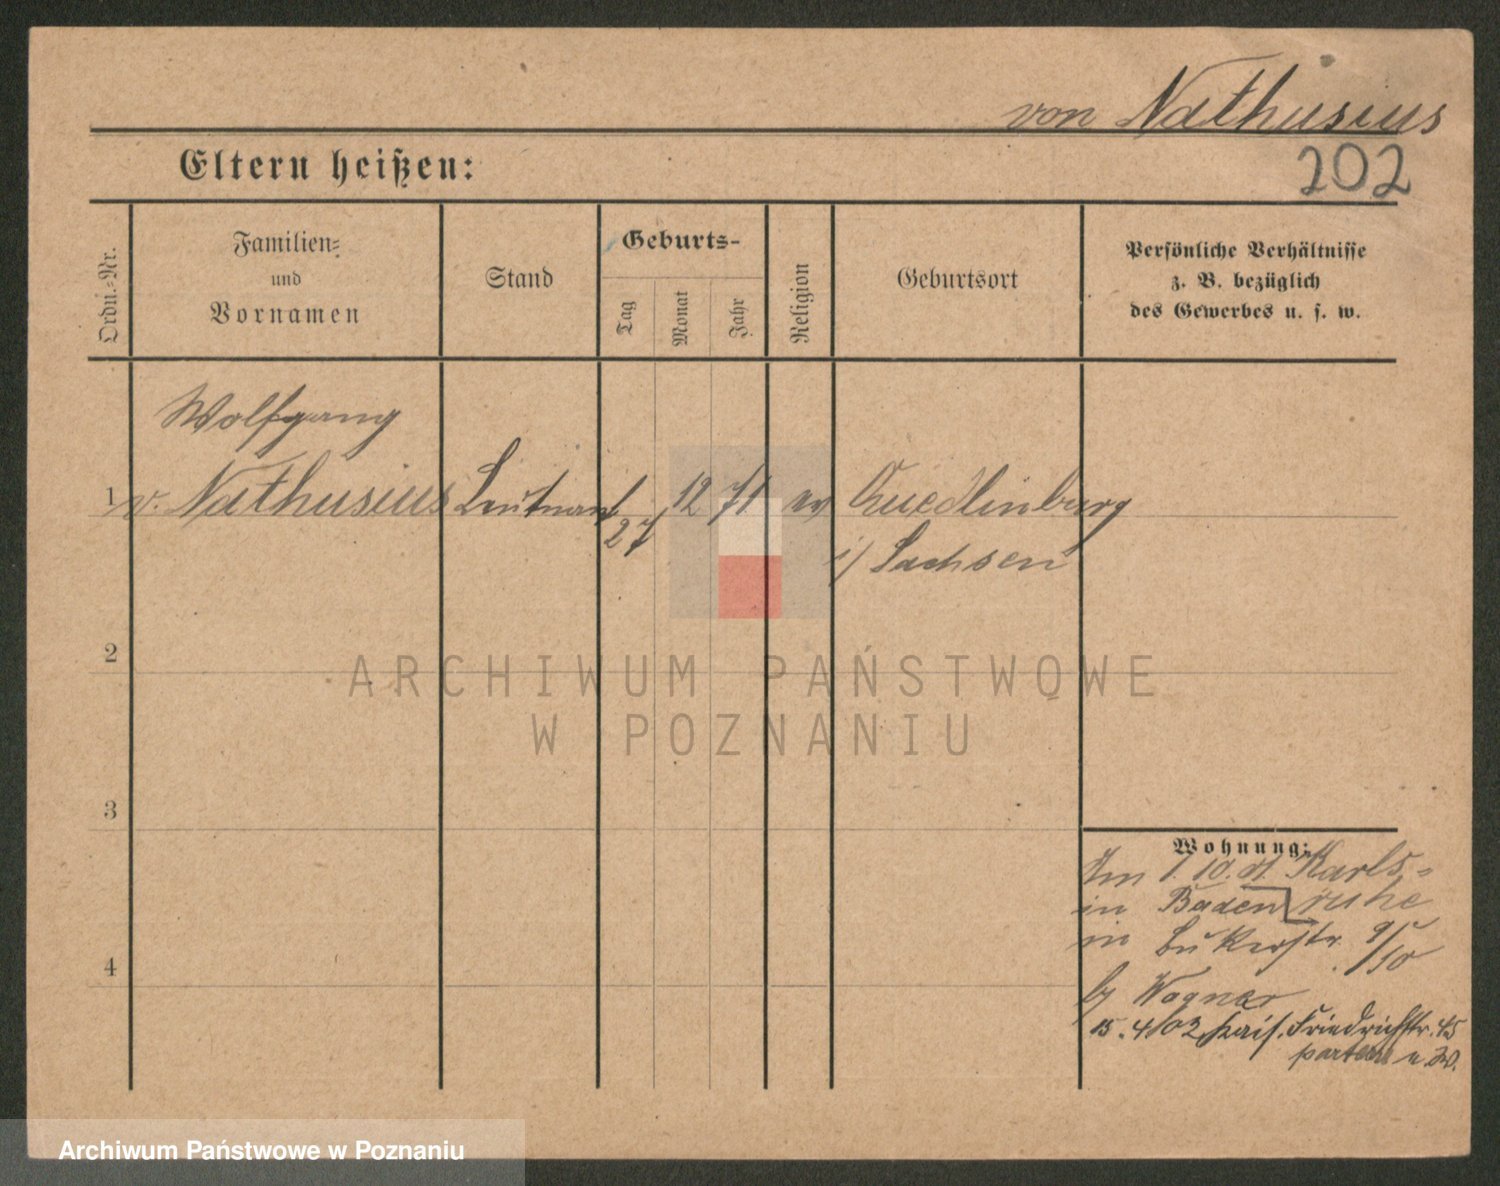 von Nathusius
Eltern heißen:
202
Ordn.-Nr.
Familien-
und
Vornamen
Stand
Geburts-
Tag
Monat
Jahr
Religion
Geburtsort
Persönliche Verhältnisse
z. B. bezüglich
des Gewerbes u. s. w.
Wolfgang
1 v. Nathusius Leutnant 27 12 71 ev Quedlinburg
i/ Sachsen
2
ARCHIWUM PAŃSTWOWE
W POZNANIU
3
Wohnung:
Am 1. 10. 01. Karls-
in Baden ruhe
in 9/10
by Wagner
15. 4/02 Kais. Friedrichstr. 45
parterre
4
Archiwum Państwowe w Poznaniu